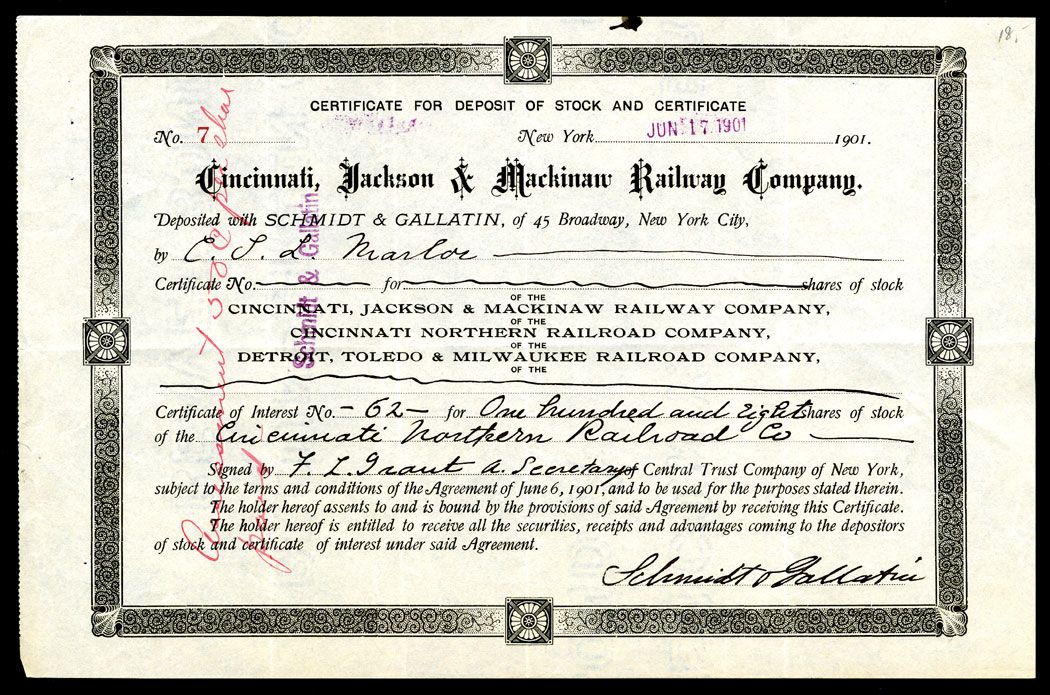 18.
CERTIFICATE FOR DEPOSIT OF STOCK AND CERTIFICATE
No. 7 New York JUN 17 1901 1901.
Cincinnati, Jackson & Mackinaw Railway Company.
Deposited with SCHMIDT & GALLATIN, of 45 Broadway, New York City,
by E. S. L. Marloe
Certificate No. for shares of stock
OF THE
CINCINNATI, JACKSON & MACKINAW RAILWAY COMPANY,
OF THE
CINCINNATI NORTHERN RAILROAD COMPANY,
OF THE
DETROIT, TOLEDO & MILWAUKEE RAILROAD COMPANY,
OF THE
Certificate of Interest No. - 62 - for One hundred and eight shares of stock
of the Cincinnati Northern Railroad Co
Signed by F. L. Grant A. Secretary of Central Trust Company of New York,
subject to the terms and conditions of the Agreement of June 6, 1901, and to be used for the purposes stated therein.
The holder hereof assents to and is bound by the provisions of said Agreement by receiving this Certificate.
The holder hereof is entitled to receive all the securities, receipts and advantages coming to the depositors
of stock and certificate of interest under said Agreement.
Schmidt & Gallatin
Schmidt & Gallatin
Assessment per share
paid